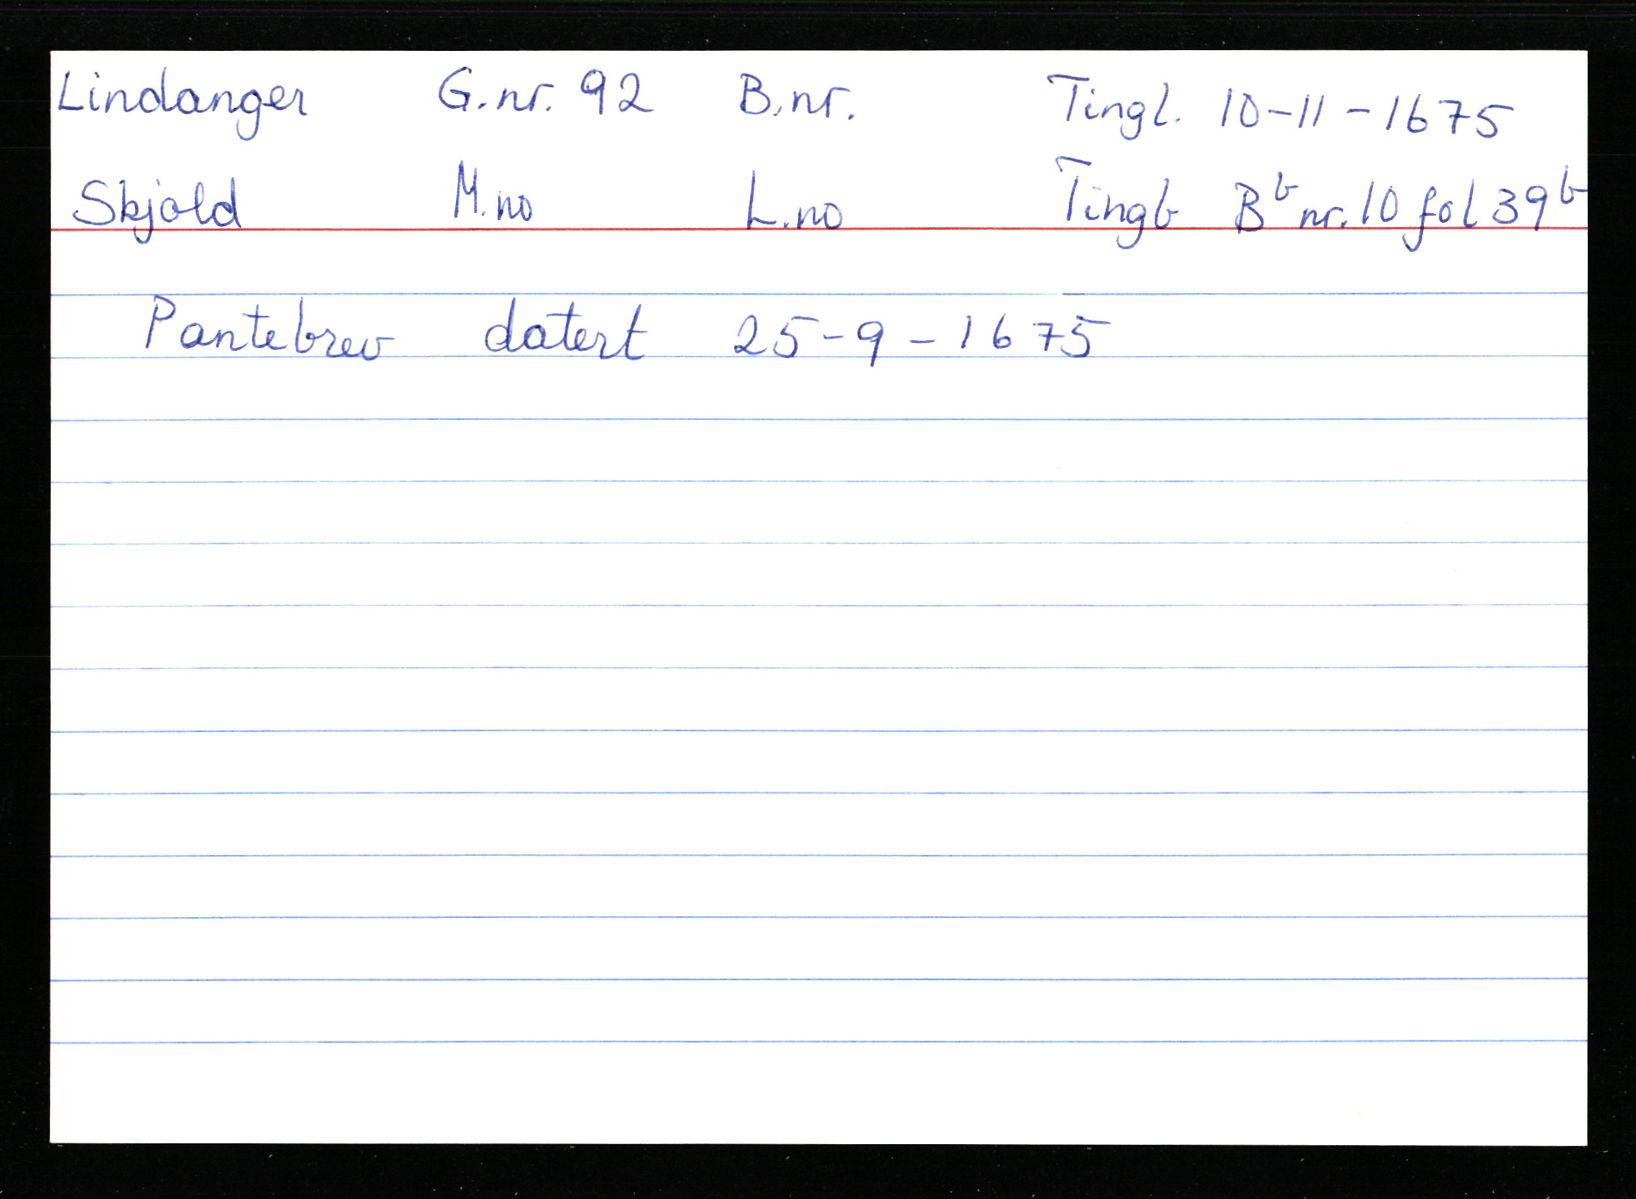 Lindanger G.nr. 92 B.nr. Tingl. 10-11-1675
Skjold M.no L.no Tingb Bᵇ nr. 10 fol 39ᵇ
Pantebrev datert 25-9-1675